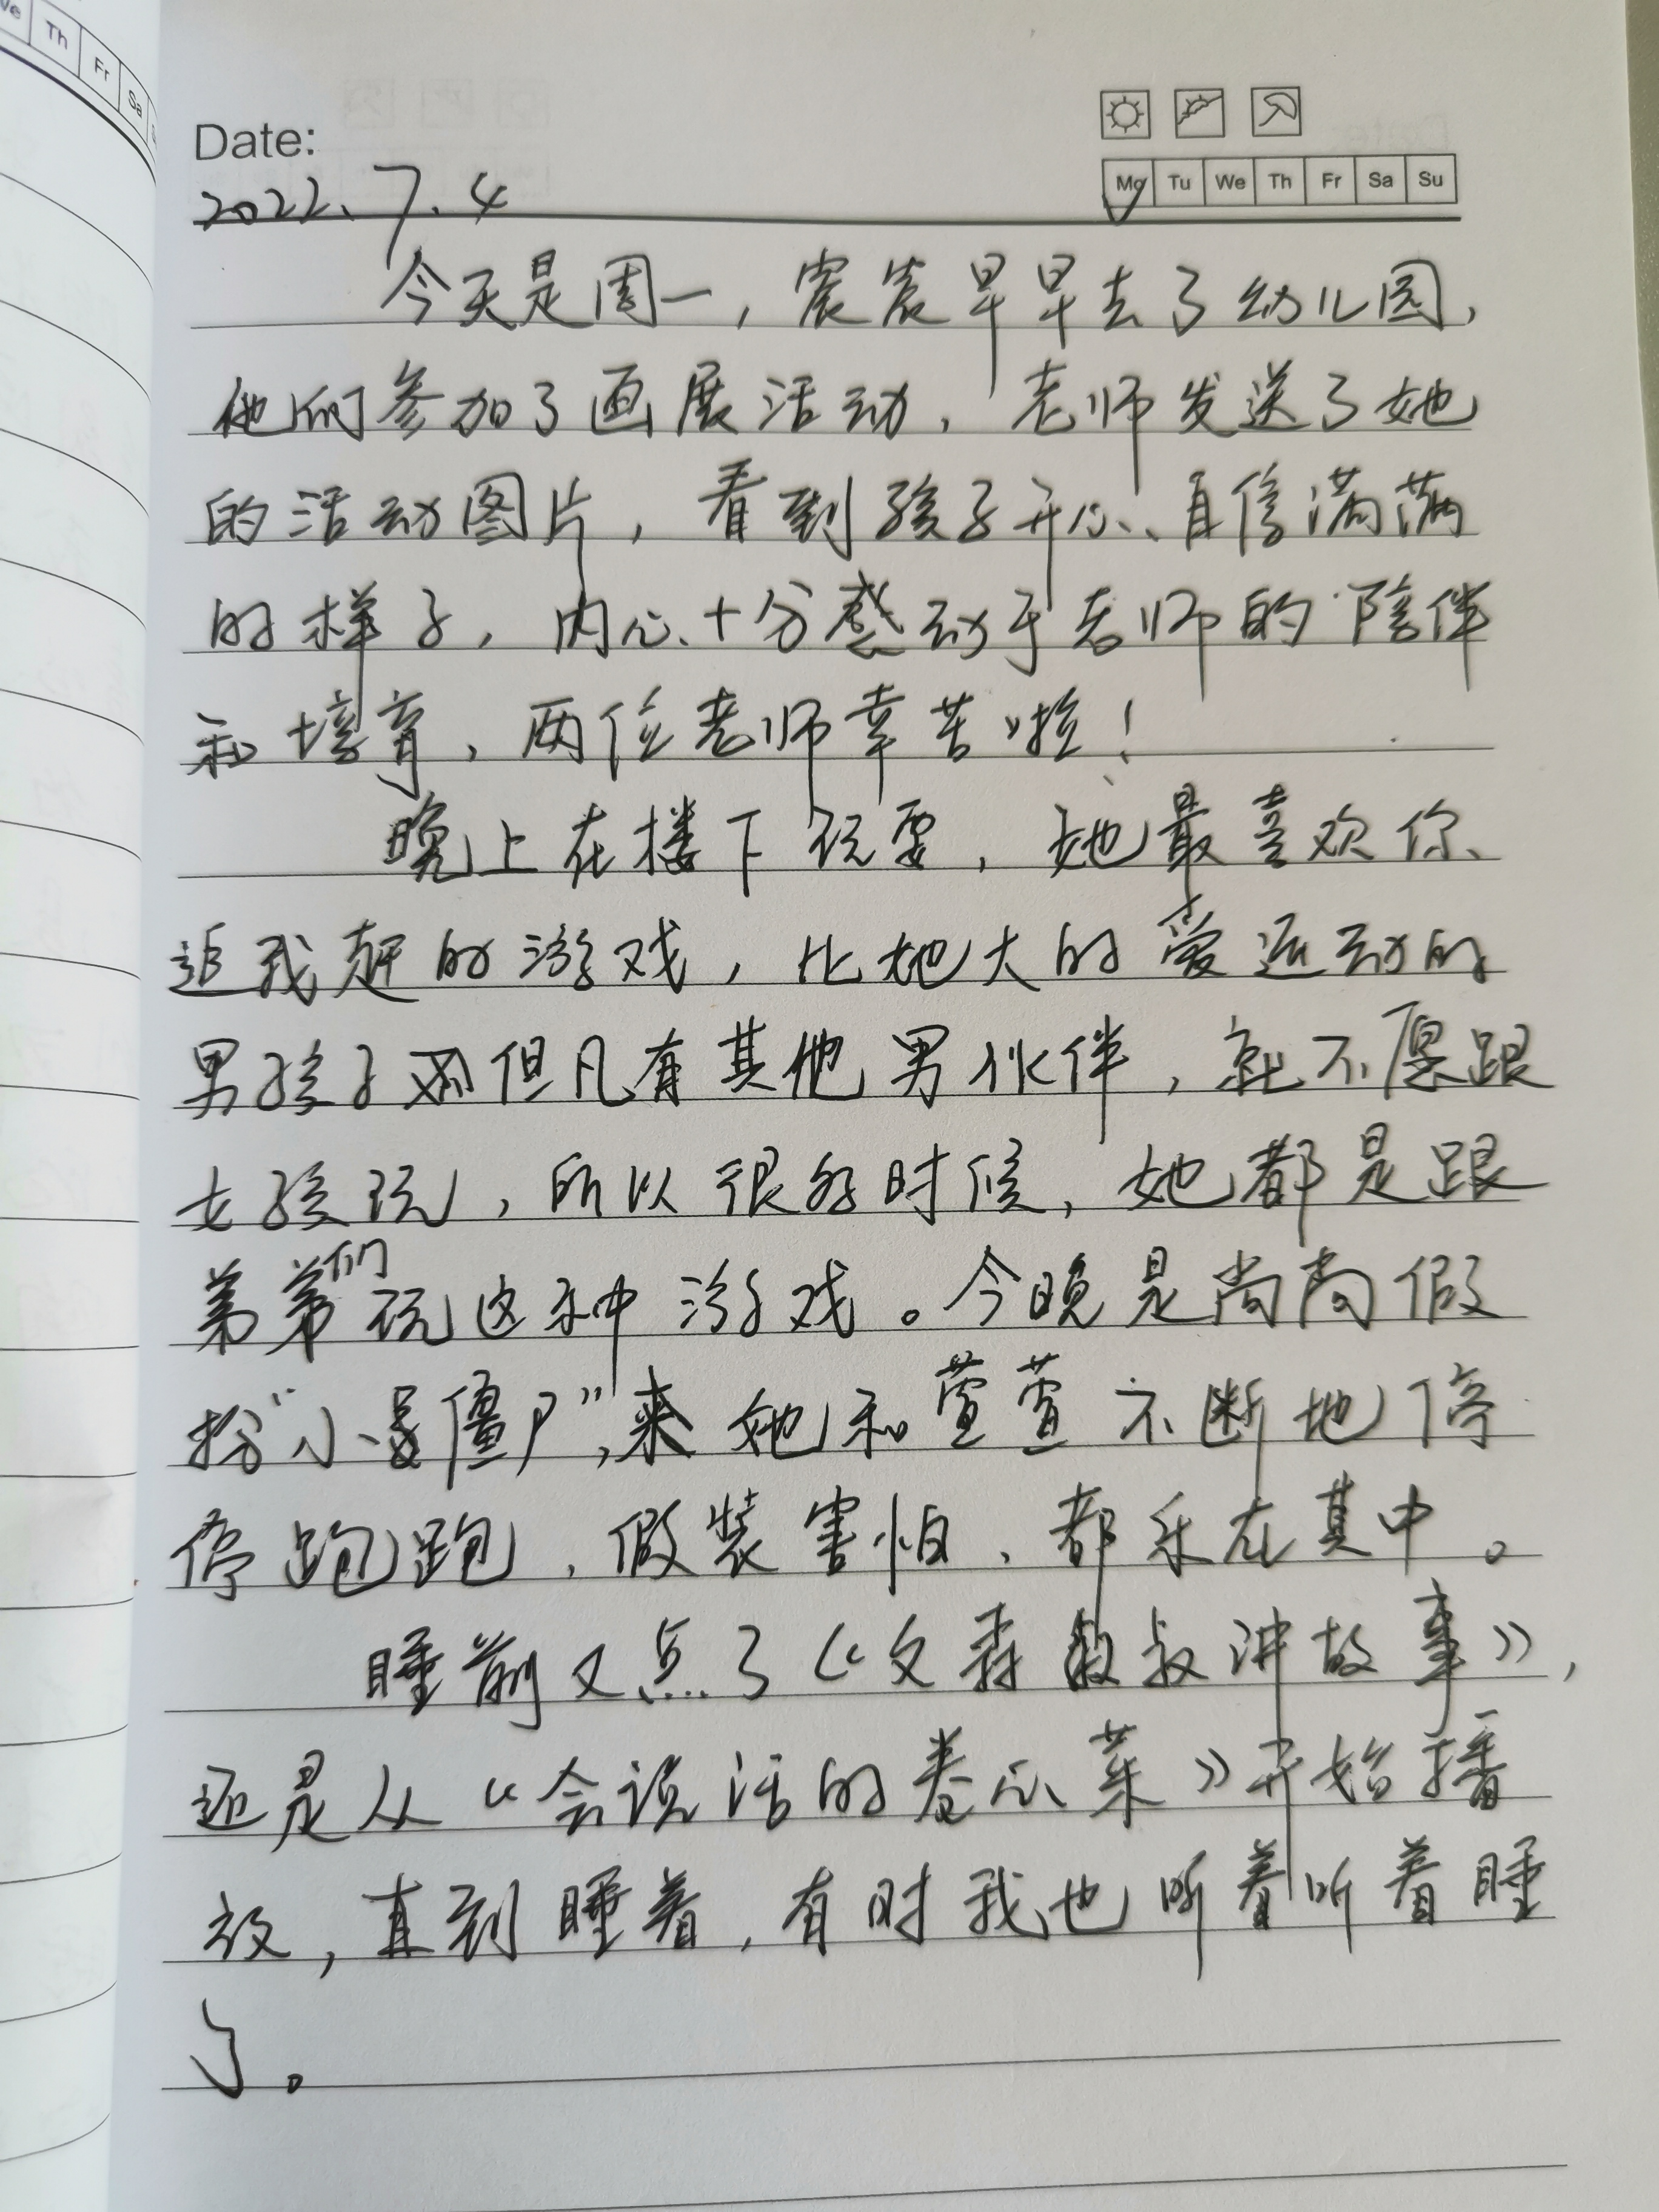 We Th Fr Sa
Date:
Mo Tu We Th Fr Sa Su
2022.7.4
今天是周一，宸宸早早去了幼儿园，
他们参加了画展活动，老师发送了她
的活动图片，看到孩子开心、自信满满
的样子，内心十分感动于老师的陪伴
和培育，两位老师辛苦啦！
晚上在楼下玩耍，她最喜欢你
追我赶的游戏，比她大的爱运动的
男孩子但凡有其他男伙伴，就不愿跟
女孩玩，所以很多时候，她都是跟
弟弟们玩这种游戏。今晚是尚尚假
扮“小僵尸”，她和萱萱不断地停
停跑跑，假装害怕，都乐在其中。
睡前又点了《文森叔叔讲故事》，
还是从“会说话的卷心菜》开始播
放，直到睡着，有时我也听着听着睡
了。